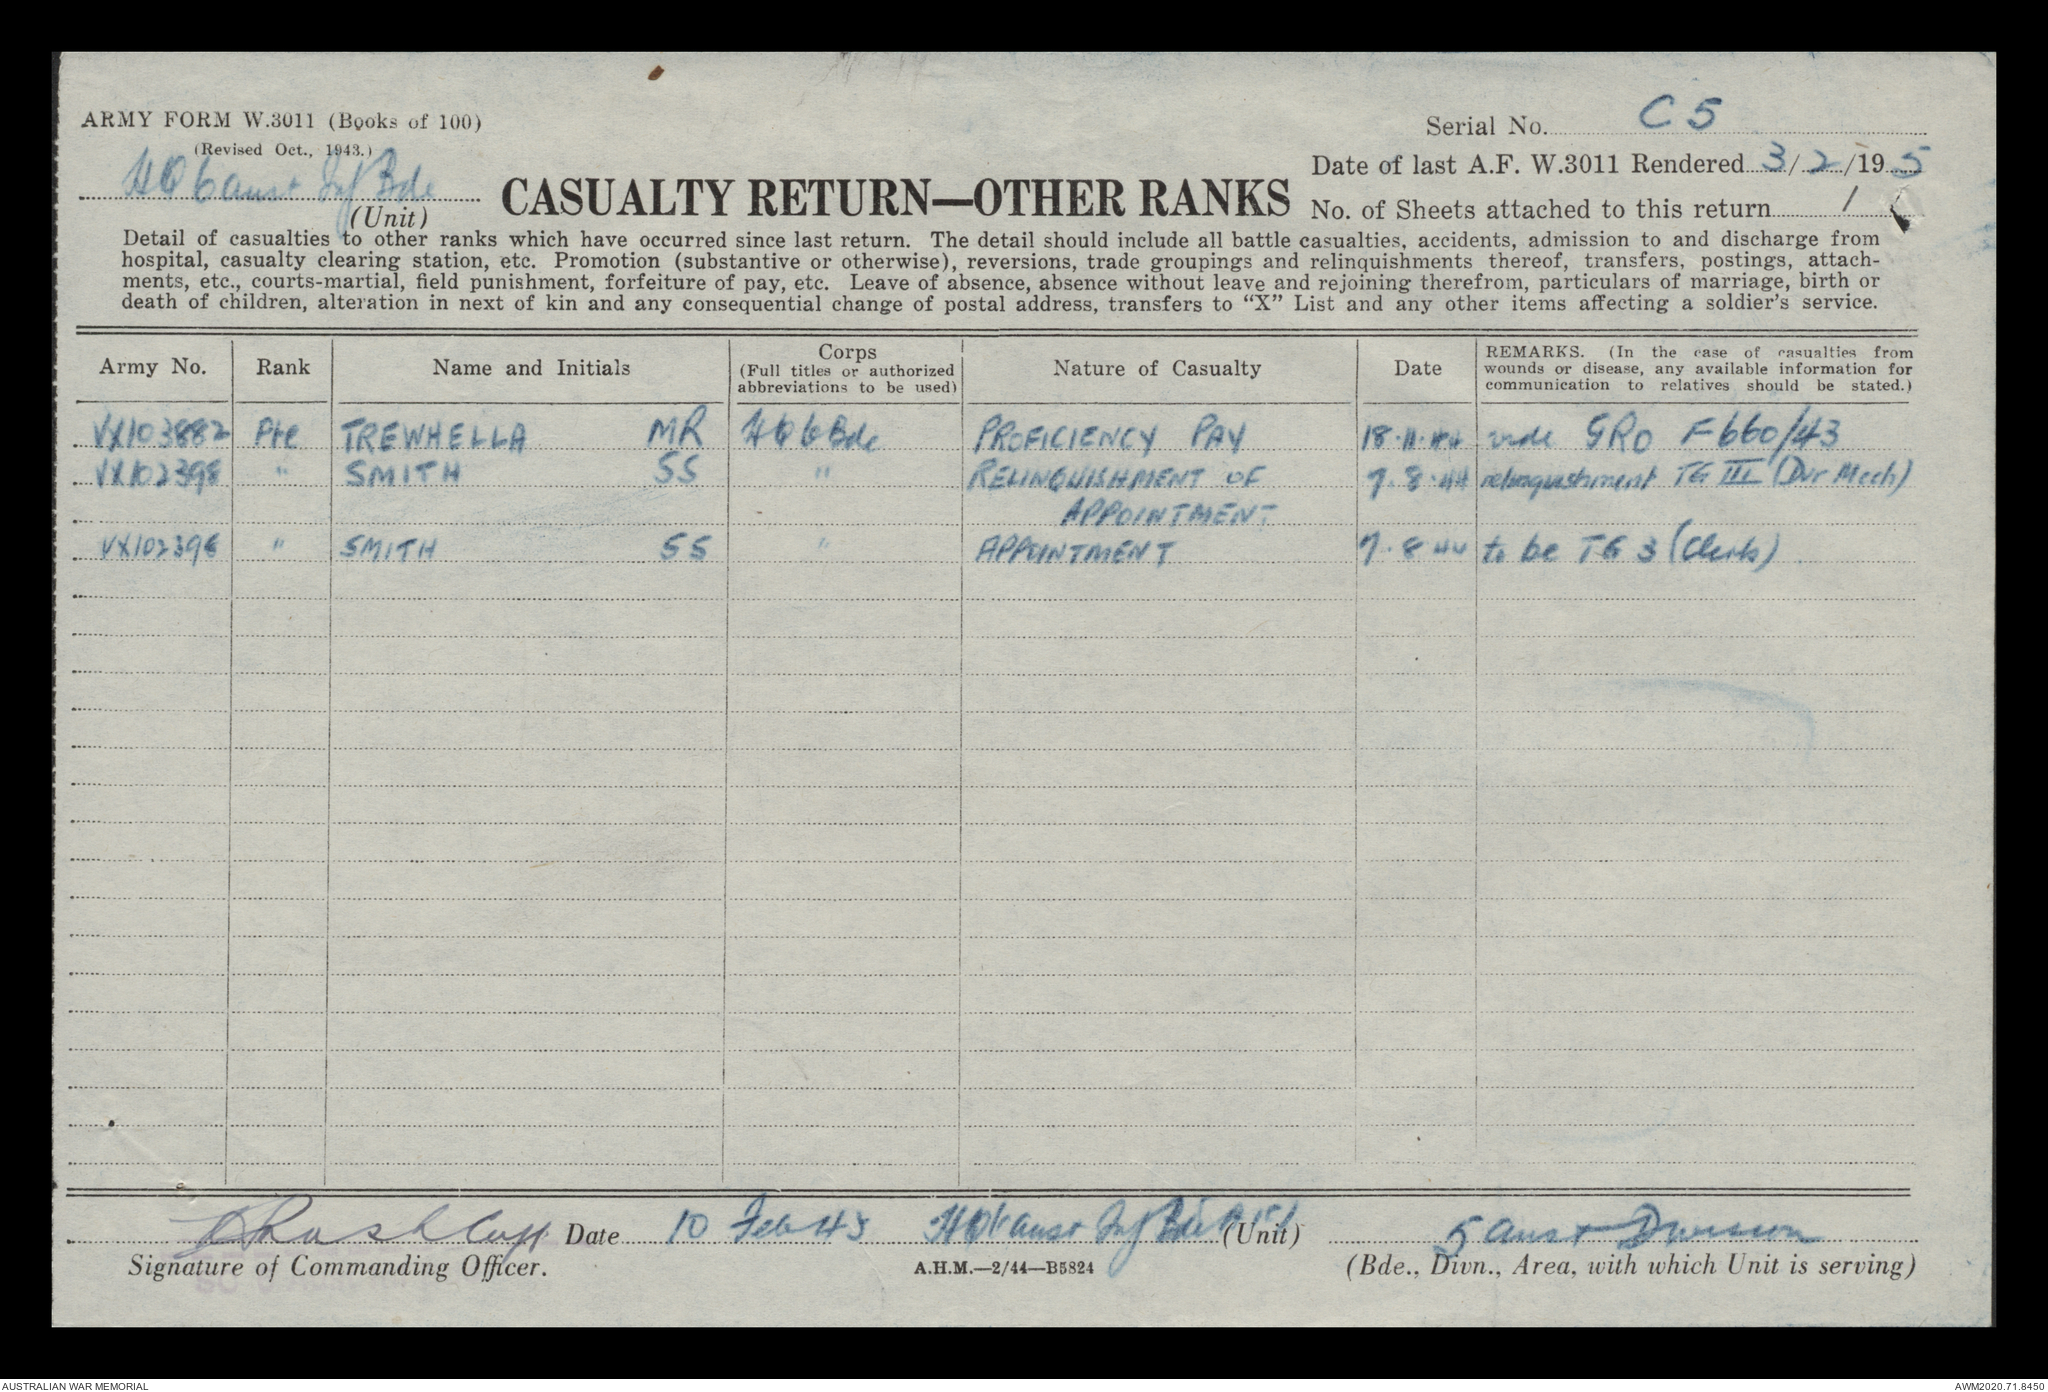 ARMY FORM W.3011 (Books of 100)
(Revised Oct., 1943.)
HQ 6 Aust Inf Bde
(Unit)
CASUALTY RETURN—OTHER RANKS
Serial No. C 5
Date of last A.F. W.3011 Rendered 3/2/19 5
No. of Sheets attached to this return 1
Detail of casualties to other ranks which have occurred since last return. The detail should include all battle casualties, accidents, admission to and discharge from
hospital, casualty clearing station, etc. Promotion (substantive or otherwise), reversions, trade groupings and relinquishments thereof, transfers, postings, attach-
ments, etc., courts-martial, field punishment, forfeiture of pay, etc. Leave of absence, absence without leave and rejoining therefrom, particulars of marriage, birth or
death of children, alteration in next of kin and any consequential change of postal address, transfers to “X” List and any other items affecting a soldier's service.
Army No. Rank Name and Initials Corps (Full titles or authorized abbreviations to be used) Nature of Casualty Date REMARKS. (In the case of casualties from wounds or disease, any available information for communication to relatives should be stated.)
VX103882 Pte TREWHELLA MR HQ 6 Bde PROFICIENCY PAY 18.11.44 vide GRO F660/43
VX102398 " SMITH SS " RELINQUISHMENT OF 7.8.44 relinquishment TG III (Dvr Mech)
APPOINTMENT
VX102396 " SMITH SS " APPOINTMENT 7.8.44 to be TG 3 (Clerk)
Capt Date 10 Feb 45 HQ 6 Aust Inf Bde (Unit) 5 Aust Division
Signature of Commanding Officer. A.H.M.—2/44—B5824 (Bde., Divn., Area, with which Unit is serving)
AUSTRALIAN WAR MEMORIAL AWM2020.71.8450